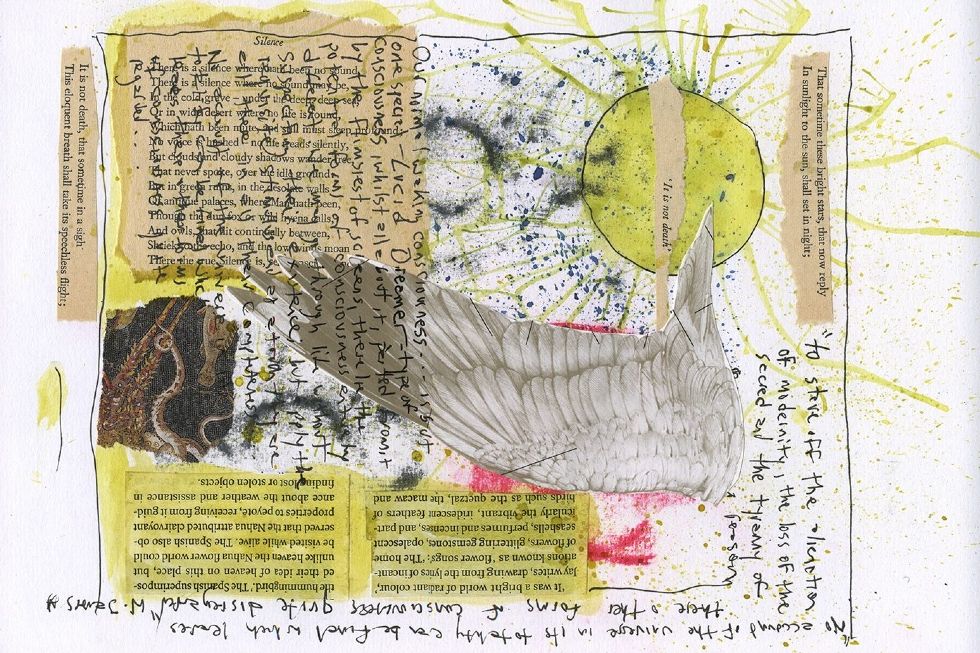 Silence
There is a silence where hath been no sound,
There is a silence where no sound may be,
In the cold grave – under the deep deep sea,
Or in wide desert where no life is found,
Which hath been mute, and still must sleep profound;
No voice is hushed – no life treads silently,
But clouds and cloudy shadows wander free,
That never spoke, over the idle ground
But in green ruins, in the desolate walls
Of antique palaces, where Man hath been,
Though the dun fox, or wild hyena, calls,
And owls, that flit continually between,
Shriek to the echo, and the low winds moan
There the true Silence is, self
It is not death, that sometime in a sigh
This eloquent breath shall take its speechless flight;
'It is not death'
That sometime these bright stars, that now reply
In sunlight to the sun, shall set in night;
Our normal waking consciousness... is but
one special – Lucid Dreamer – type of
consciousness whilst all about it, parted
by the flimsiest of screens, there lie
potential forms of consciousness entirely
different. We may go through life without
suspecting their existence, but apply the
requisite stimulus and at a touch they are
No account of the universe
regarded.
"to stave off the alienation
of modernity, the loss of the
sacred and the tyranny of
reason
"No account of the universe in its totality can be final which leaves
these other forms of consciousness quite disregarded" W. James
'It was a bright world of radiant colour,'
Jay writes, drawing from the lyrics of incant-
ations known as 'flower songs'. 'The home
of flowers, glittering gemstones, opalescent
seashells, perfumes and incenses, and part-
icularly the vibrant, iridescent feathers of
birds such as the quetzal, the macaw and
the hummingbird.' The Spanish superimpos-
ed their idea of heaven on this place, but
unlike heaven the Nahua flower world could
be visited while alive. The Spanish also ob-
served that the Nahua attributed clairvoyant
properties to peyote, receiving from it guid-
ance about the weather and assistance in
finding lost or stolen objects.